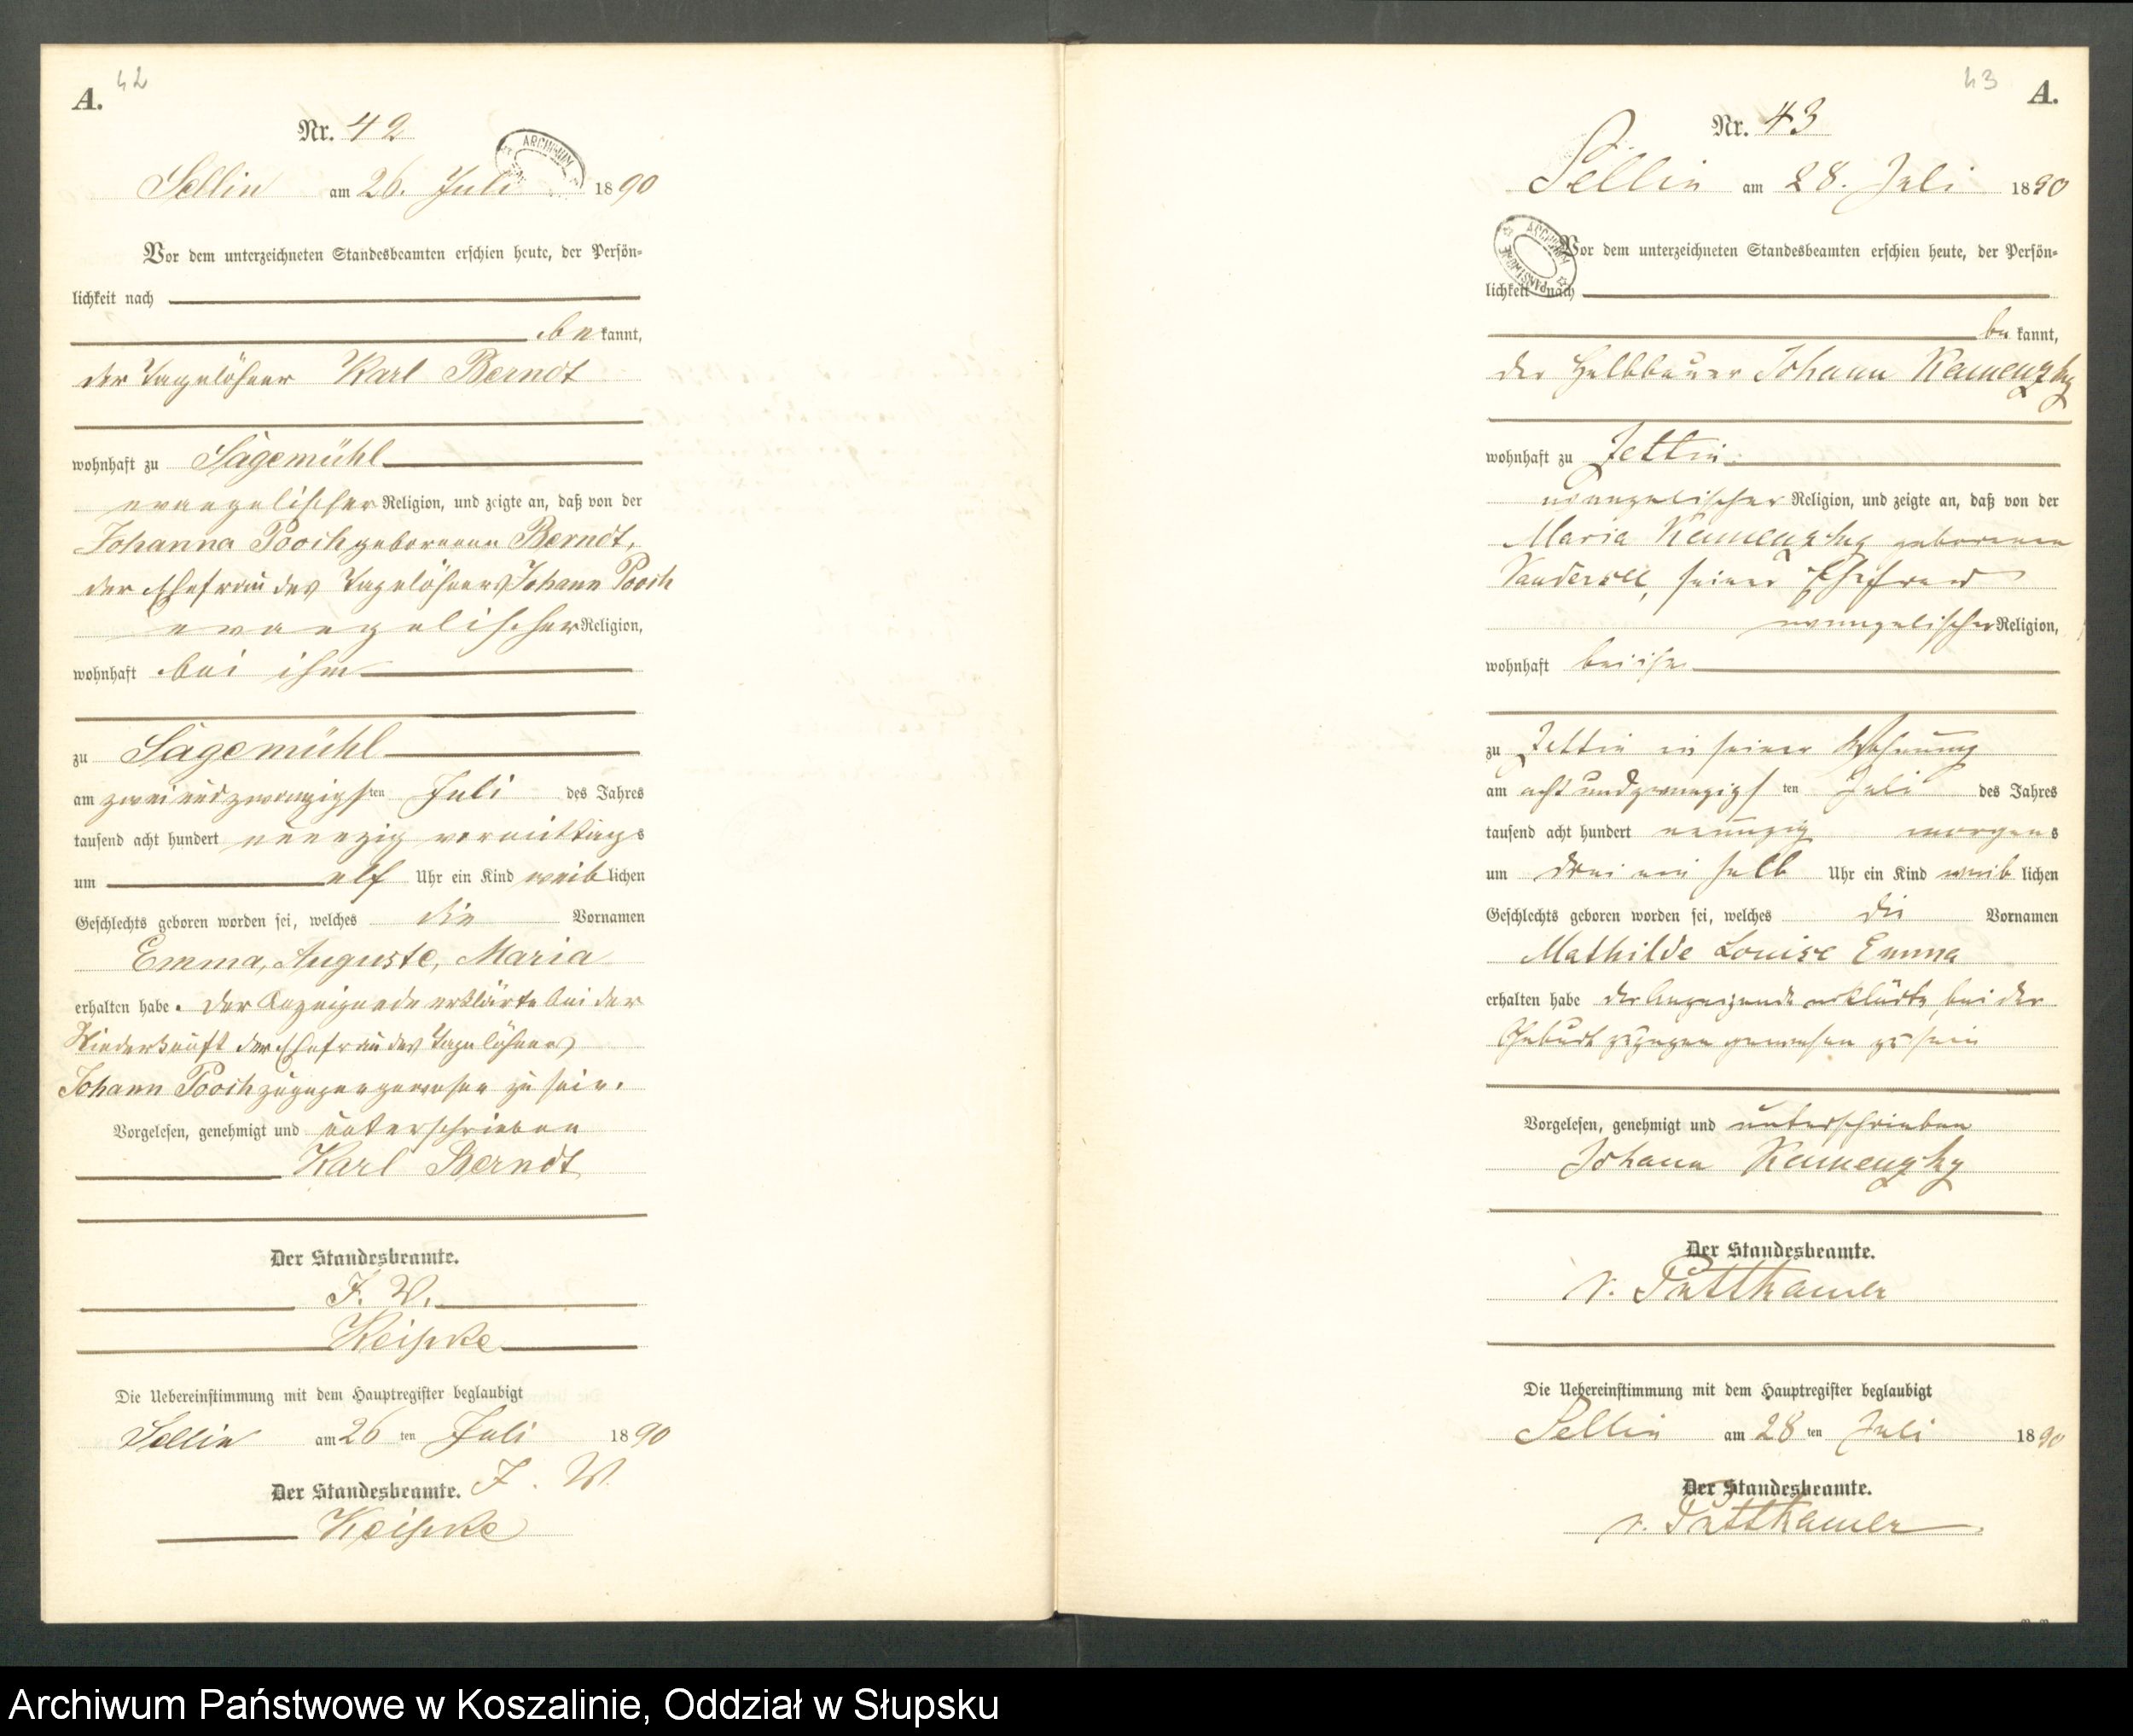 A. 42
Nr. 42
Sellin am 26. Juli 1890
Vor dem unterzeichneten Standesbeamten erschien heute, der Persön-
lichkeit nach
bekannt,
der Tagelöhner Karl Berndt
wohnhaft zu Sägemühl
evangelischer Religion, und zeigte an, daß von der
Johanna Pooch geborenen Berndt,
der Ehefrau des Tagelöhners Johann Pooch
evangelischer Religion,
wohnhaft bei ihm
zu Sägemühl
am zweiundzwanzigsten Juli des Jahres
tausend acht hundert neunzig vormittags
um elf Uhr ein Kind weiblichen
Geschlechts geboren worden sei, welches die Vornamen
Emma, Auguste, Maria
erhalten habe. Der Anzeigende erklärte bei der
Niederkunft der Ehefrau des Tagelöhners
Johann Pooch zugegen gewesen zu sein.
Vorgelesen, genehmigt und unterschrieben
Karl Berndt
Der Standesbeamte.
J. V.
Die Uebereinstimmung mit dem Hauptregister beglaubigt
Sellin am 26 ten Juli 1890
Der Standesbeamte. J. V.
43 A.
Nr. 43
Sellin am 28. Juli 1890
ARCHIWUM
Vor dem unterzeichneten Standesbeamten erschien heute, der Persön-
lichkeit nach
bekannt,
der Halbbauer Johann Kamenzky
wohnhaft zu Zettin
evangelischer Religion, und zeigte an, daß von der
Maria Kamenzky geborenen
seiner Ehefrau
evangelischer Religion,
wohnhaft bei ihm
zu Zettin in seiner Wohnung
am acht und zwanzigsten Juli des Jahres
tausend acht hundert neunzig morgens
um drei ein halb Uhr ein Kind weiblichen
Geschlechts geboren worden sei, welches die Vornamen
Mathilde Louise Emma
erhalten habe der Anzeigende erklärte, bei der
Geburt zugegen gewesen zu sein
Vorgelesen, genehmigt und unterschrieben
Johann Kamenzky
Der Standesbeamte.
v. Puttkamer
Die Uebereinstimmung mit dem Hauptregister beglaubigt
Sellin am 28 ten Juli 1890
Der Standesbeamte.
v. Puttkamer
Archiwum Państwowe w Koszalinie, Oddział w Słupsku